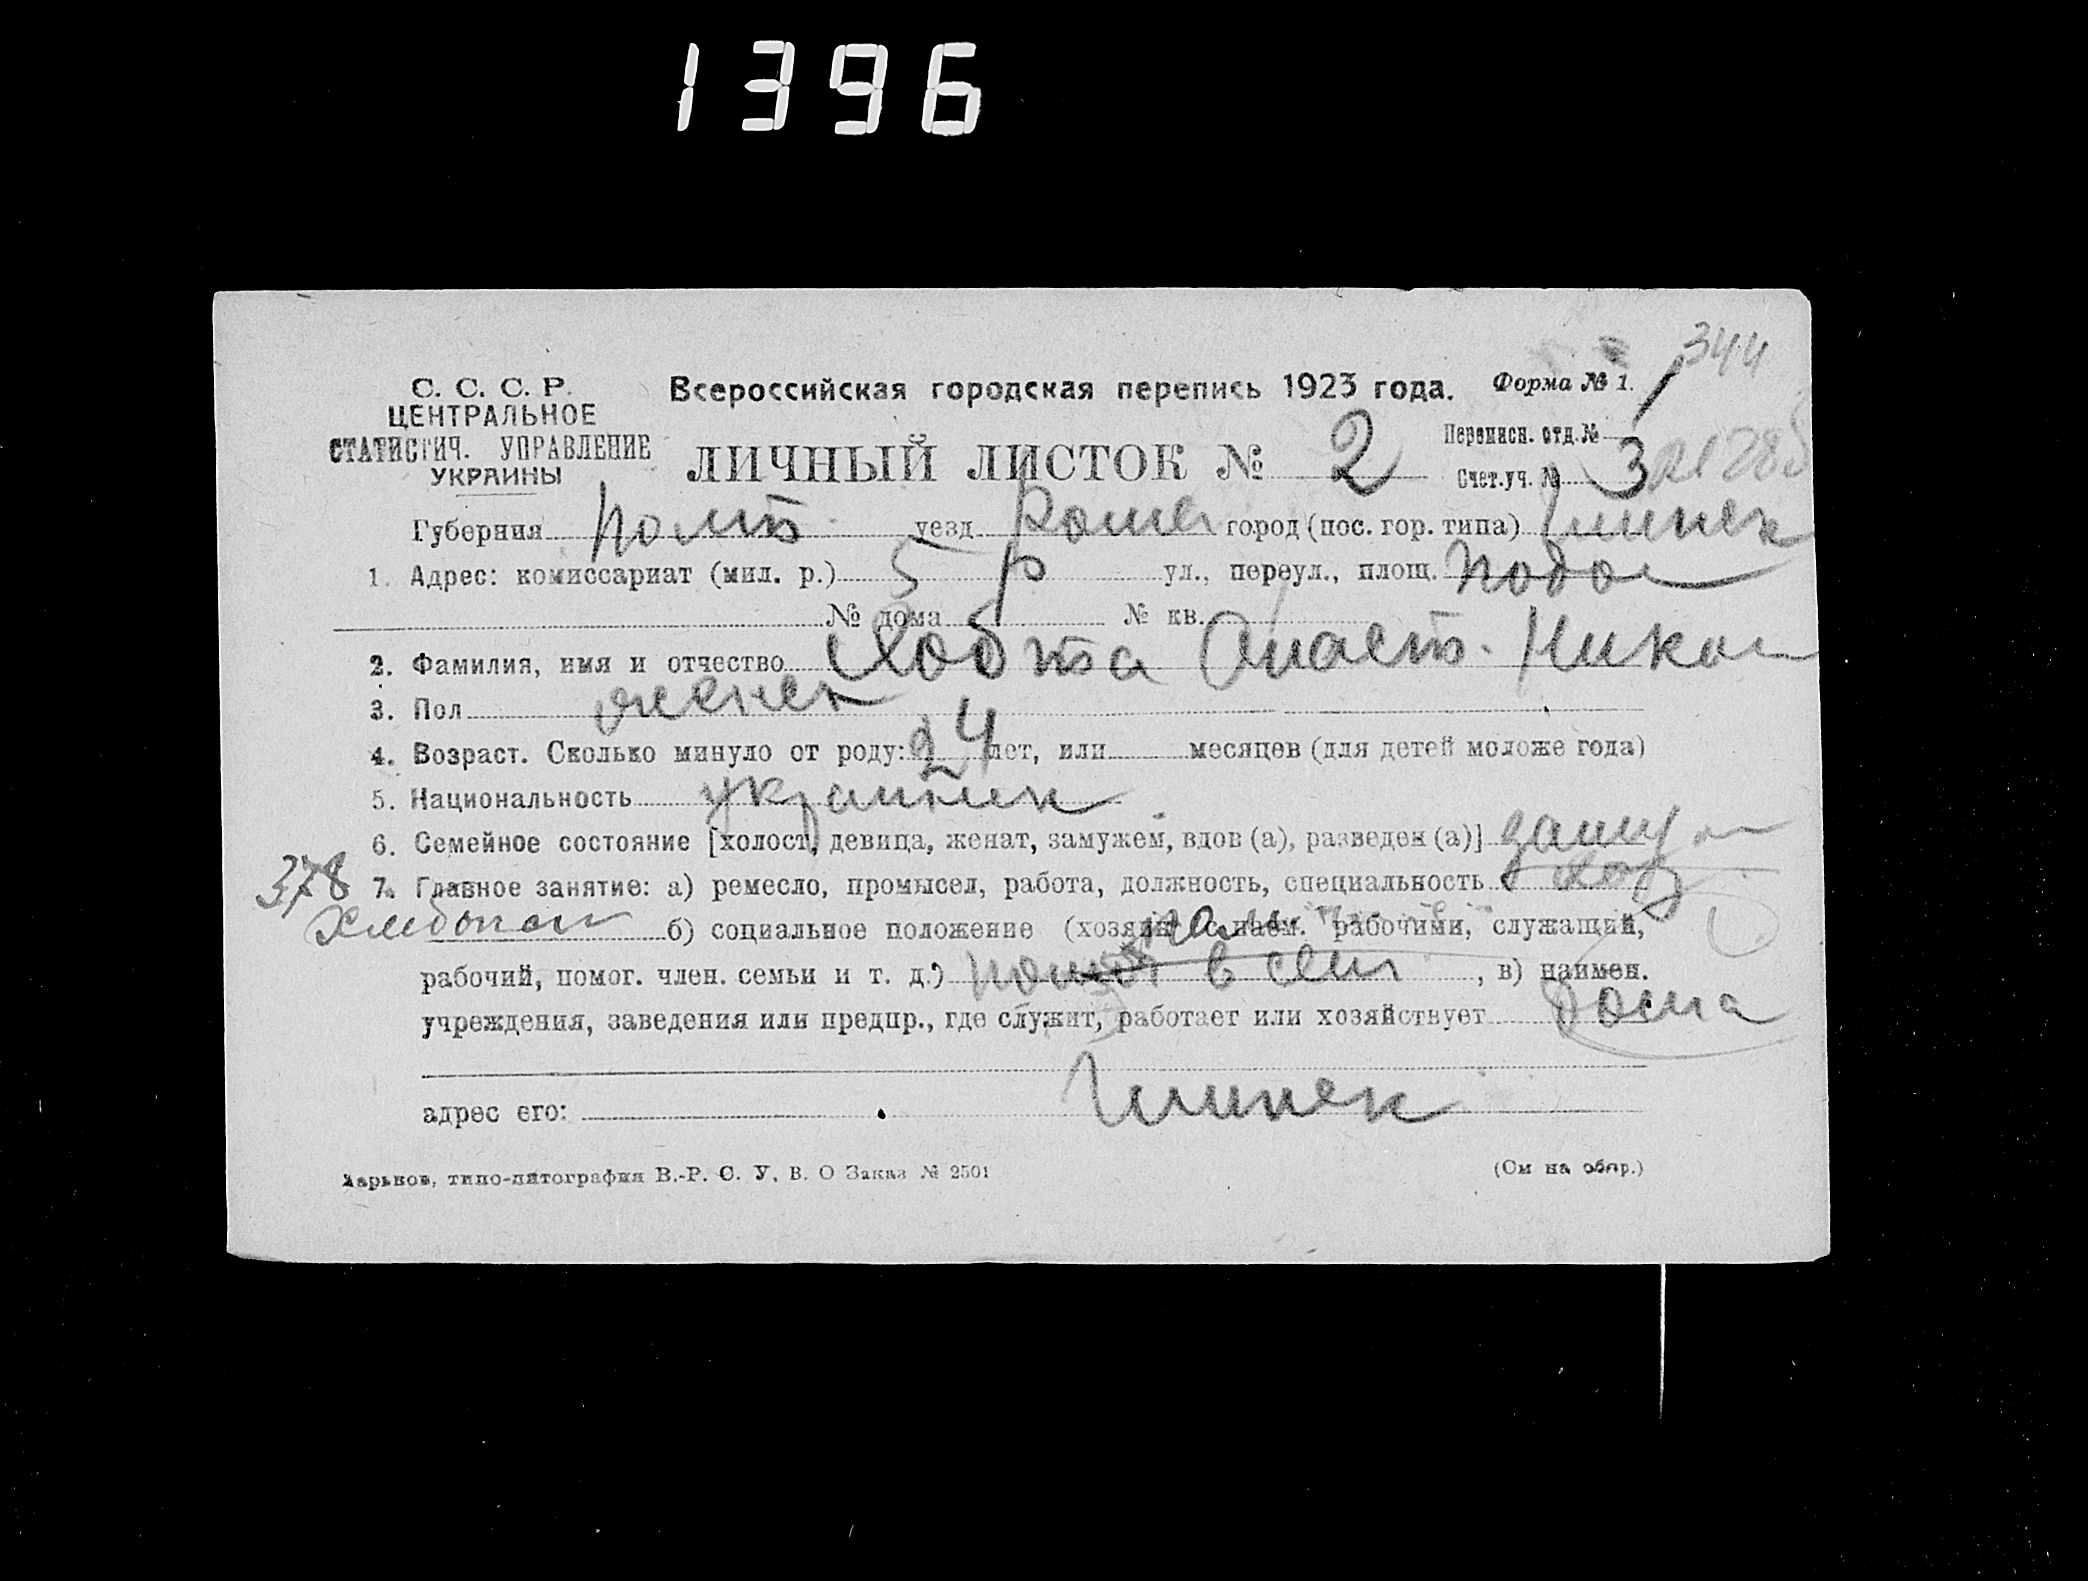 1396
344
С. С. С. Р.
ЦЕНТРАЛЬНОЕ
СТАТИСТИЧ. УПРАВЛЕНИЕ
УКРАИНЫ
Всероссийская городская перепись 1923 года. Форма № 1.
ЛИЧНЫЙ ЛИСТОК № 2
Переписн. отд. № 1
Счет. уч. № 3
Губерния Полт уезд Ромен город (пос. гор. типа) Глинск
1. Адрес: комиссариат (мил. р.) 5 р ул., переул., площ. Подол
№ дома № кв.
2. Фамилия, имя и отчество Хобта Анаст. Никол
3. Пол женск
4. Возраст. Сколько минуло от роду: 24 лет, или месяцев (для детей моложе года)
5. Национальность украинск
6. Семейное состояние [холост, девица, женат, замужем, вдов (а), разведен (а)] замуж
378 7. Главное занятие: а) ремесло, промысел, работа, должность, специальность
Хлебопаш б) социальное положение (хозяин с наем. рабочими, служащий,
рабочий, помог. член. семьи и т. д.) в сем , в) наимен.
учреждения, заведения или предпр., где служит, работает или хозяйствует дома
адрес его: Глинск
Харьков, типо-литография В.-Р. С. У. В. О Заказ № 2501
(См на обор.)